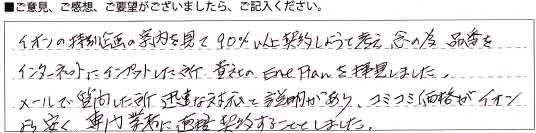 ■ご意見、ご感想、ご要望がございましたら、ご記入ください。
イオンの特別企画の案内を見て90%以上契約しようと考え念の為品番を
インターネットにインプットした所、貴社の Ene Planを拝見しました。
メールで質問した所迅速な対応で説明があり、コミコミ価格がイオン
より安く、専門業者に直接契約することとしました。